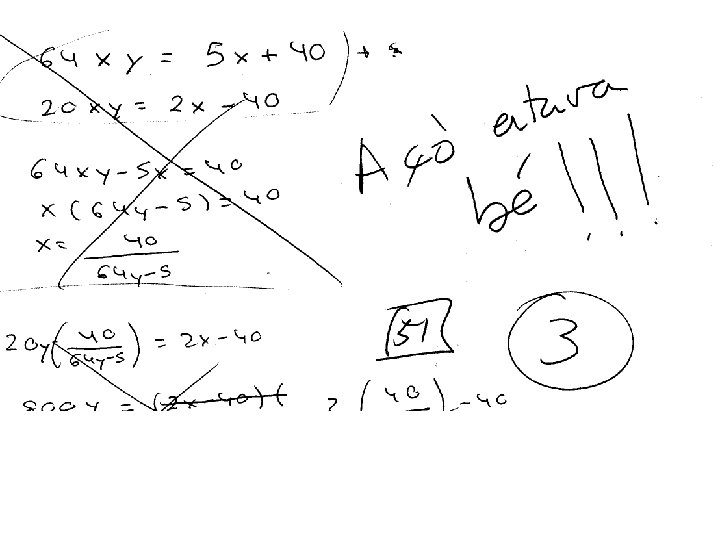 64xy = 5x + 40
20xy = 2x - 40
64xy - 5x = 40
x(64y - 5) = 40
x = 40 / 64y - 5
20y(40 / 64y - 5) = 2x - 40
800y = (2x - 40)(
2(40
- 40
Açò estava
bé!!!
51
3